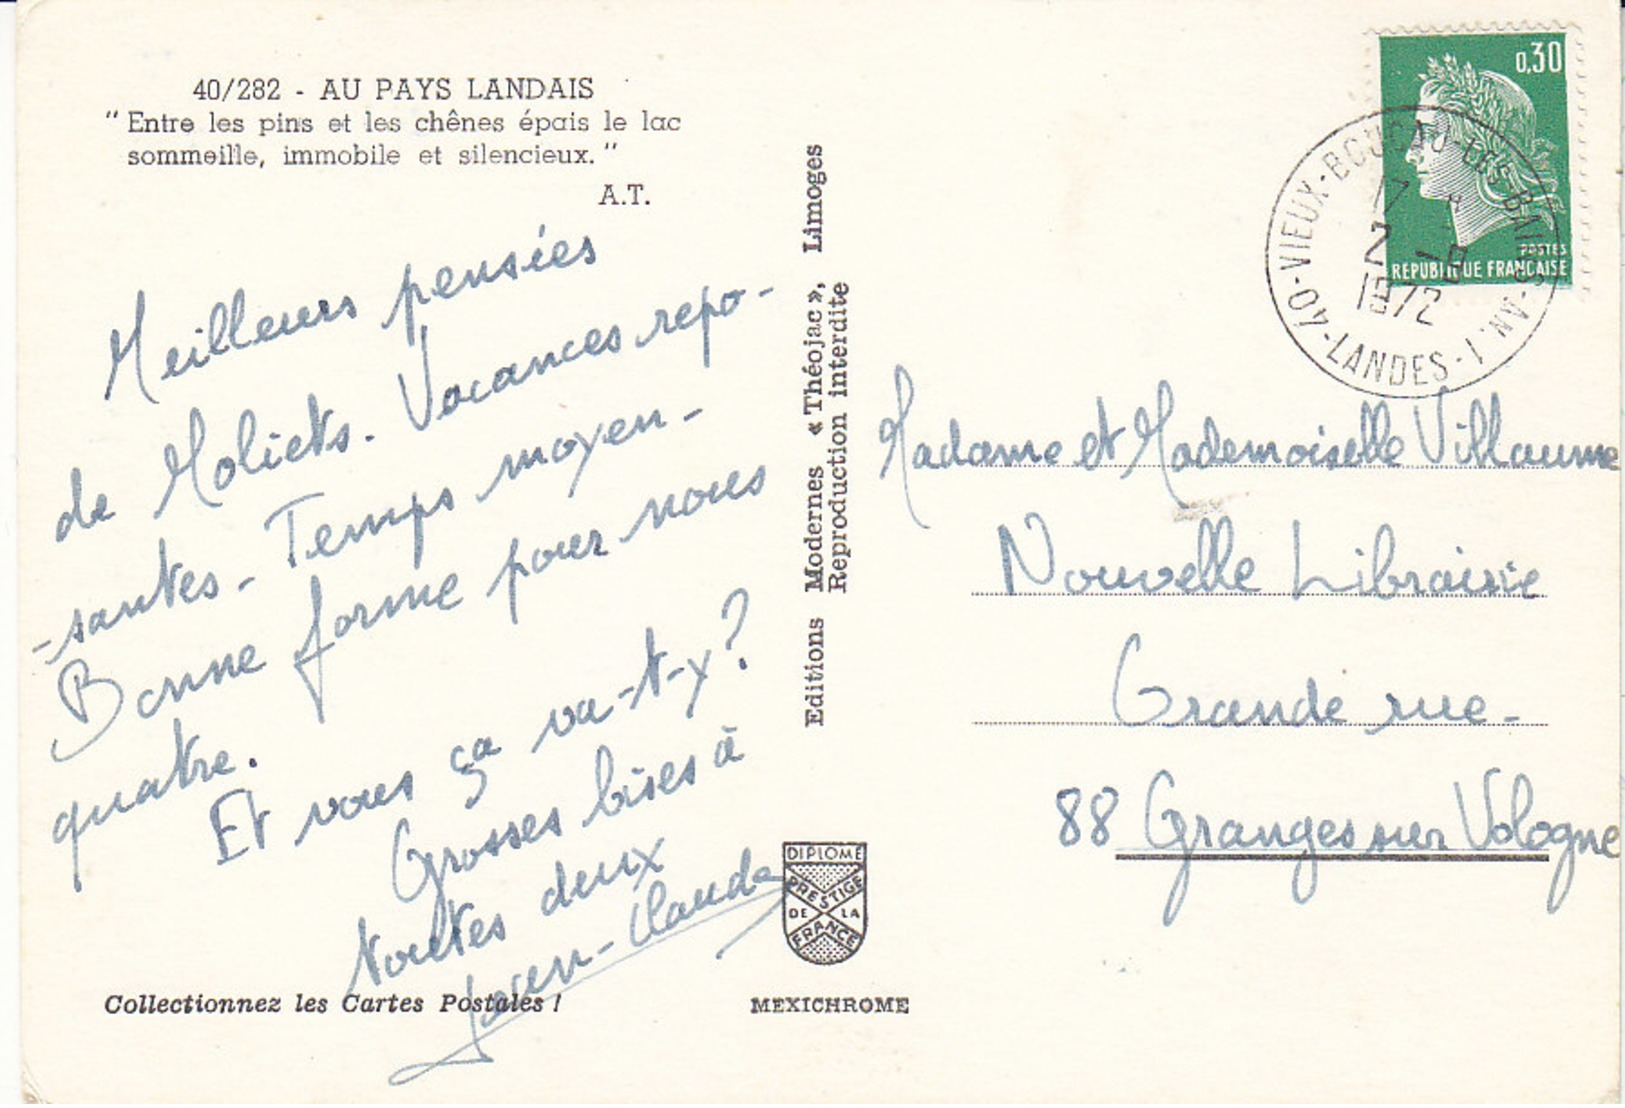 40/282 - AU PAYS LANDAIS
" Entre les pins et les chênes épais le lac
sommeille, immobile et silencieux. "
A.T.
Meilleurs pensées
de Moliets. Vacances repo-
-santes - Temps moyen -
Bonne forme pour nous
quatre.
Et vous ça va-t-y ?
Grosses bises à
toutes deux
Jean-Claude
Collectionnez les Cartes Postales !
Editions Modernes « Théojac », Limoges
Reproduction interdite
DIPLOME
PRESTIGE
DE LA
FRANCE
MEXICHROME
0,30
POSTES
REPUBLIQUE FRANCAISE
40-VIEUX-BOUCAU-LES-BAINS-AN.1-LANDES-
17 H
2 -8
1972
Madame et Mademoiselle Villaume
Nouvelle Librairie
Grande rue -
88 Granges sur Vologne